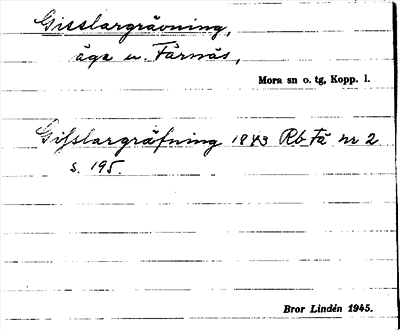 Gisslargrävning,
äga u. Färnäs,
Mora sn o. tg, Kopp. l.
Gifslargräfning 1843 Rb Fä nr 2
s. 195.
Bror Lindén 1945.